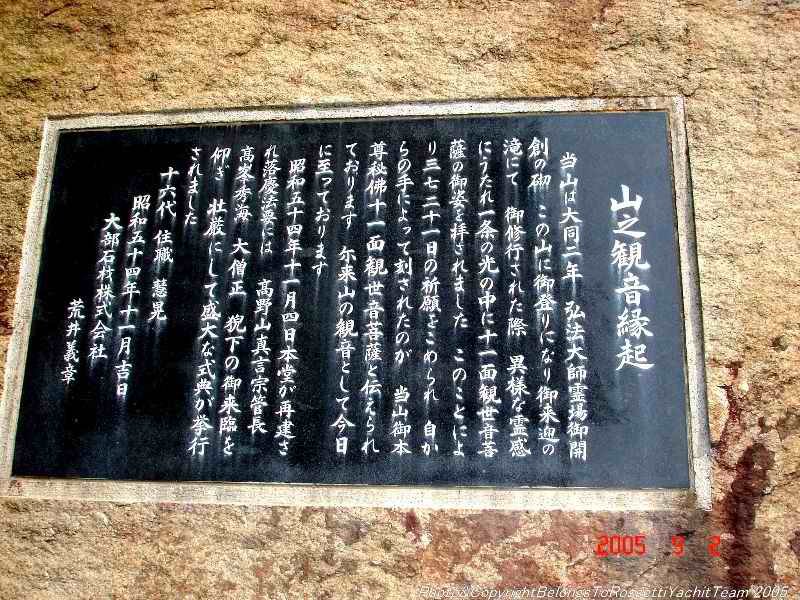 山之観音縁起
当山は大同二年 弘法大師霊場御開
創の砌 この山に御登りになり御来迎の
滝にて 御修行された際 異様な霊感
にうたれ一条の光の中に十一面観世音菩
薩の御姿を拝されました このことによ
り三七二十一日の祈願をこめられ 自か
らの手によって刻されたのが 当山御本
尊秘佛十一面観世音菩薩と伝えられ
ております 尓来山の観音として今日
に至っております
昭和五十四年十一月四日本堂が再建さ
れ落慶法要には 高野山真言宗管長
高峯秀海 大僧正 猊下の御来臨を
仰ぎ 壮厳にして盛大な式典が挙行
されました
十六代 住職 慧晃
昭和五十四年十一月吉日
大部石材株式会社
荒井義章
2005 9 2
Photo&CopyrightBelongsToRossettiYachitTeam 2005